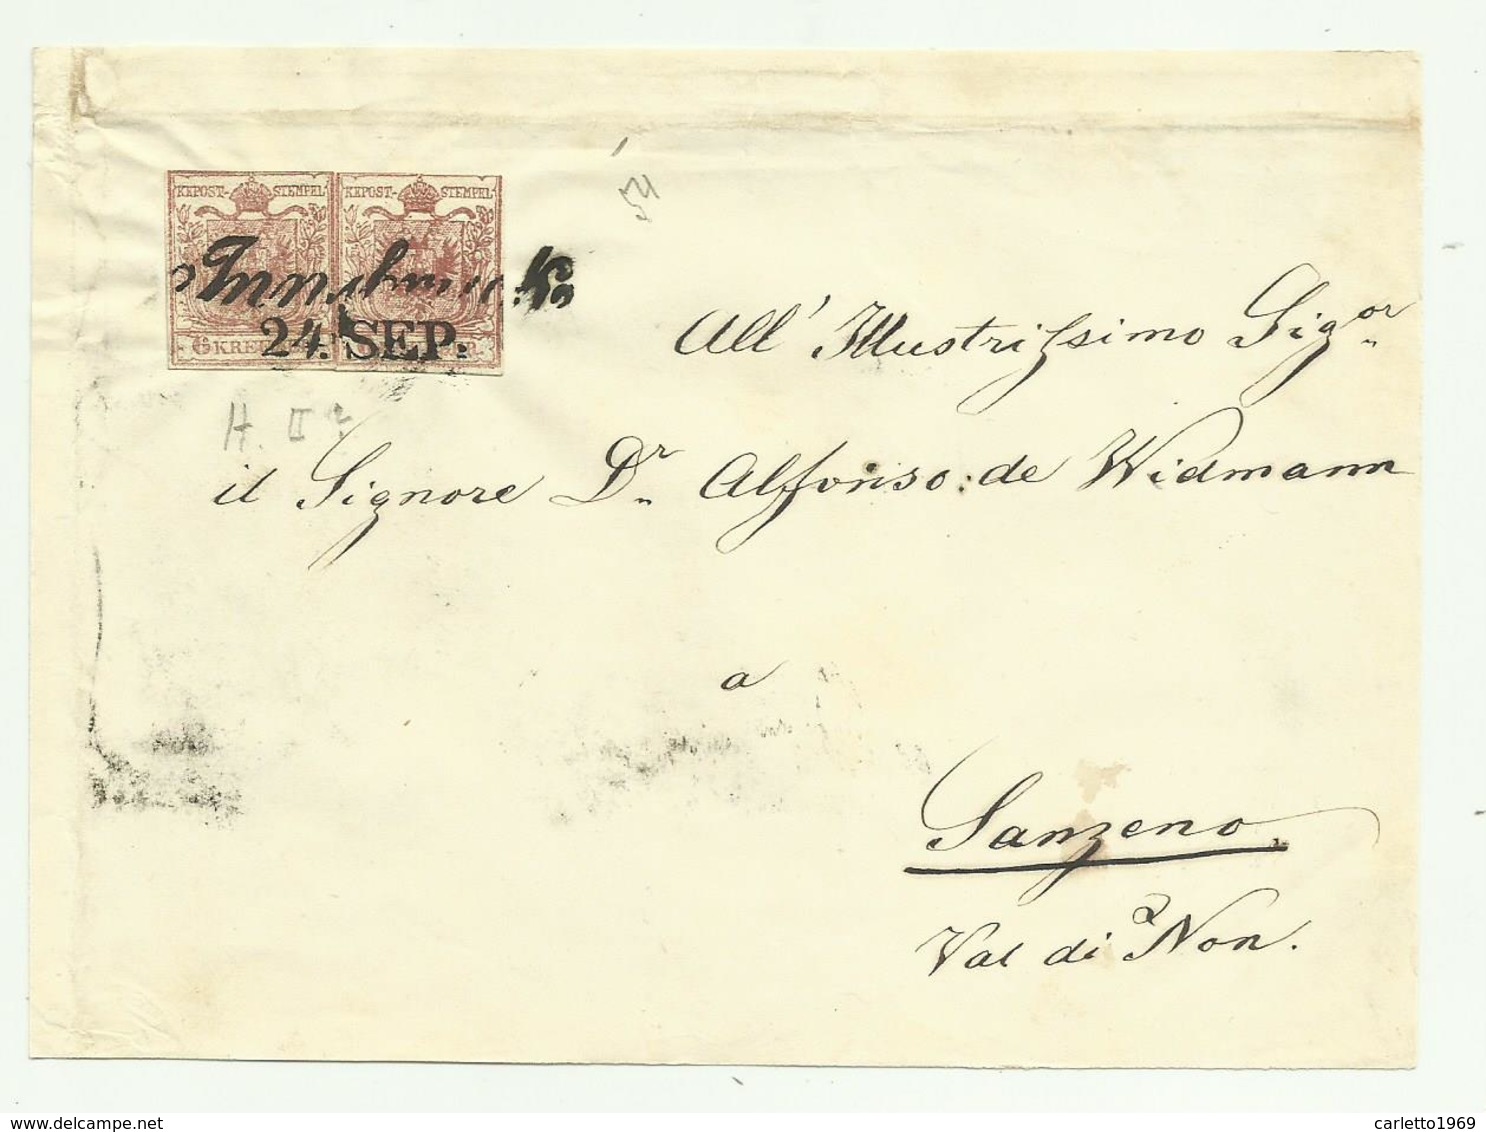 KKPOST- STEMPEL KKPOST- STEMPEL
Innsbruck
24. SEP.
6 KREU
54
H. II
All' Illustrissimo Sigor
il Signore Dr Alfonso de Widmann
a
Sanzeno
Val di Non.
carletto1969